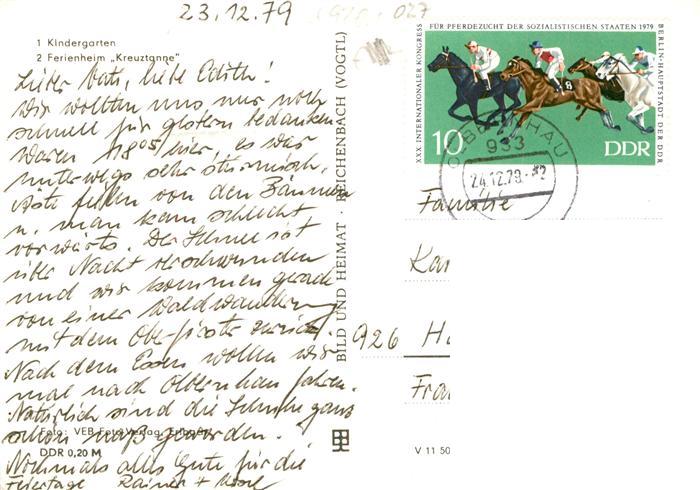 23.12.79
1 Kindergarten
2 Ferienheim „Kreuztanne"
Lieber Vati, liebe Edith!
Wir wollten uns nur noch
schnell für gestern bedanken.
Waren 18⁰⁵ hier, es war
unterwegs sehr stürmisch,
Äste fielen von den Bäumen
u. man kam schlecht
vorwärts. Der Schnee ist
über Nacht verschwunden
und wir kommen gerade
von einer Waldwanderung
mit dem Oberförster zurück.
Nach dem Essen wollen wir
mal nach Olbernhau fahren.
Natürlich sind die Schuhe ganz
schön naß geworden.
Nochmals alles Gute für die
Feiertage Rainer +
Foto: VEB Foto-Verlag,
DDR 0,20 M
BILD UND HEIMAT · REICHENBACH (VOGTL)
XXX. INTERNATIONALER KONGRESS
FÜR PFERDEZUCHT DER SOZIALISTISCHEN STAATEN 1979
BERLIN-HAUPTSTADT DER DDR
8
10
DDR
OLBERNHAU
933
24.12.79
Familie
Kar
926 Ha
Fra
V 11 50